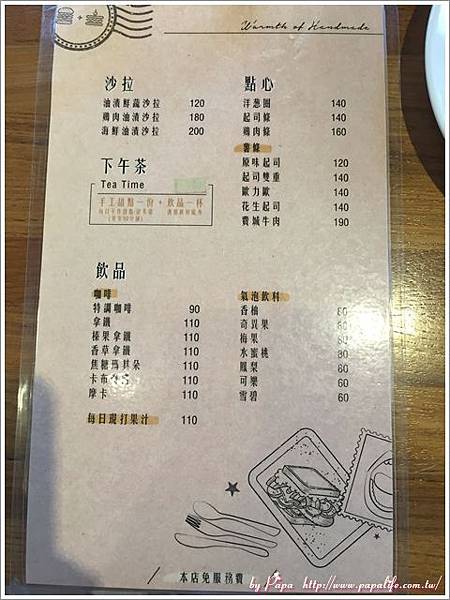 Warmth of Handmade
沙拉
油漬鮮蔬沙拉 120
鷄肉油漬沙拉 180
海鮮油漬沙拉 200
下午茶
Tea Time
手工甜點一份 + 飲品一杯
飲品
咖啡
特調咖啡 90
拿鐵 110
榛果拿鐵 110
香草拿鐵 110
焦糖瑪其朵 110
卡布 110
摩卡 110
每日現打果汁 110
點心
洋葱圈 140
起司條 140
鷄肉條 160
薯條
原味起司 120
起司雙重 140
歐力歐 140
花生起司 140
費城牛肉 190
氣泡飲料
香柚 80
奇異果 80
梅果 80
水蜜桃 80
鳳梨 60
可樂 60
雪碧 60
本店免服務費
by Papa http://www.papalife.com.tw/